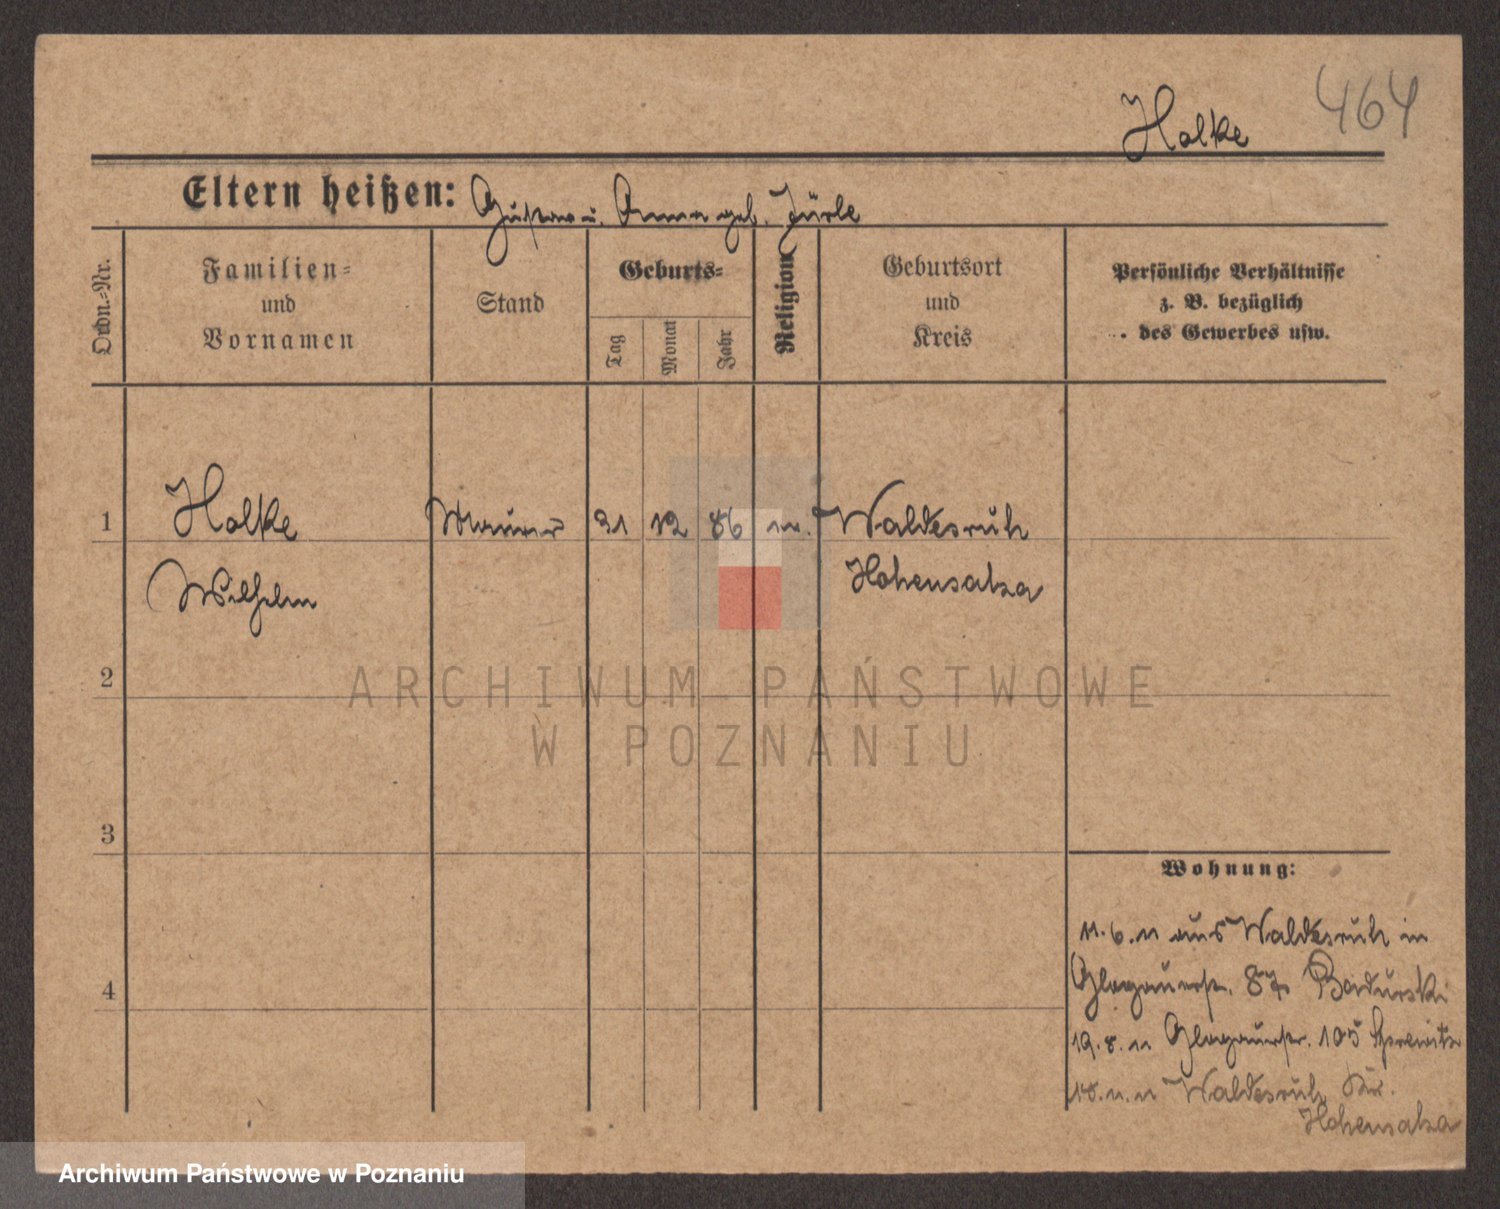 464
Halke
Eltern heißen: Gustav u. Anna geb. Jürke
Ordn.-Nr.
Familien-
und
Vornamen
Stand
Geburts-
Tag
Monat
Jahr
Religion
Geburtsort
und
Kreis
Persönliche Verhältnisse
z. B. bezüglich
des Gewerbes usw.
1 Halke Maurer 31 12 86 m. Waldesruh
Wilhelm Hohensalza
2
3
4
Wohnung:
11.6.11 aus Waldesruh in
Glogauerstr. 87 Badurski
19.8.11 Glogauerstr. 105
18.11.11 Waldesruh Kr.
Hohensalza
ARCHIWUM PAŃSTWOWE
W POZNANIU
Archiwum Państwowe w Poznaniu